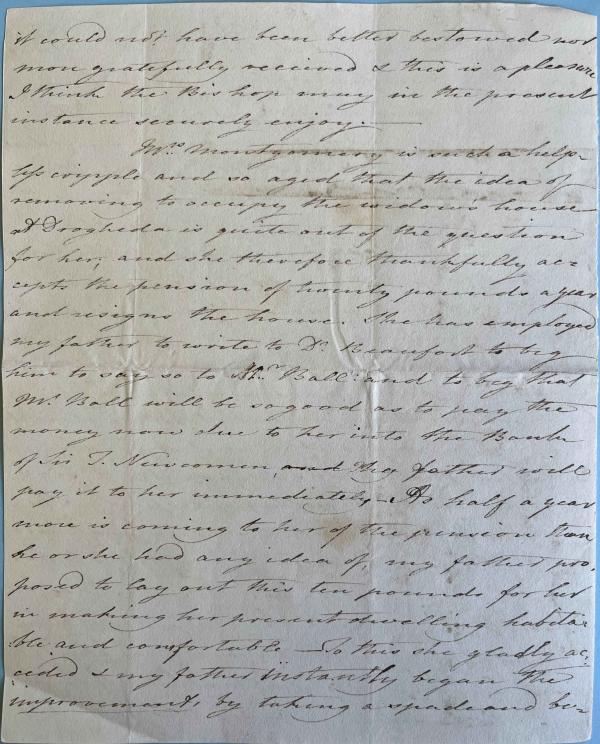 it could not have been better bestowed nor
more gratefully received & this is a pleasure
I think the Bishop may in the present
instance securely enjoy. —
Mrs Montgomery is such a help-
less cripple and so aged that the idea of
removing to occupy the widow's house
at Drogheda is quite out of the question
for her; and she therefore thankfully ac=
cepts the pension of twenty pounds a year
and resigns the house. She has employed
my father to write to Dr Beaufort to beg
him to say so to Mr Ball and to beg that
Mr Ball will be so good as to pay the
money now due to her into the Bank
of Sir T. Newcomen, and My father will
pay it to her immediately — As half a year
more is coming to her of the pension than
he or she had any idea of, my father pro,
posed to lay out this ten pounds for her
in making her present dwelling habita=
ble and comfortable — To this she gladly ac,
ceded & my father instantly began the
improvement, by taking a spade and be=